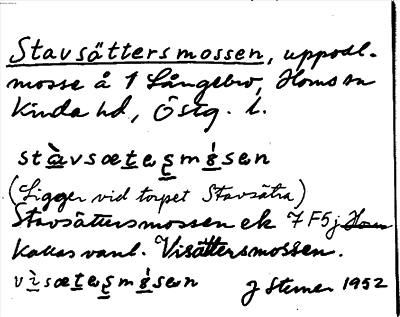 Stavsättersmossen, uppodl.
mosse å 1 Långebro, Horns sn
Kinda hd, Östg. l.
stàvsæteʂmósen
(Ligger vid torpet Stavsätra)
Stavsättersmossen ek 7 F5j
kallas vanl. Visättersmossen.
vìsæteʂmósen J Steiner 1952